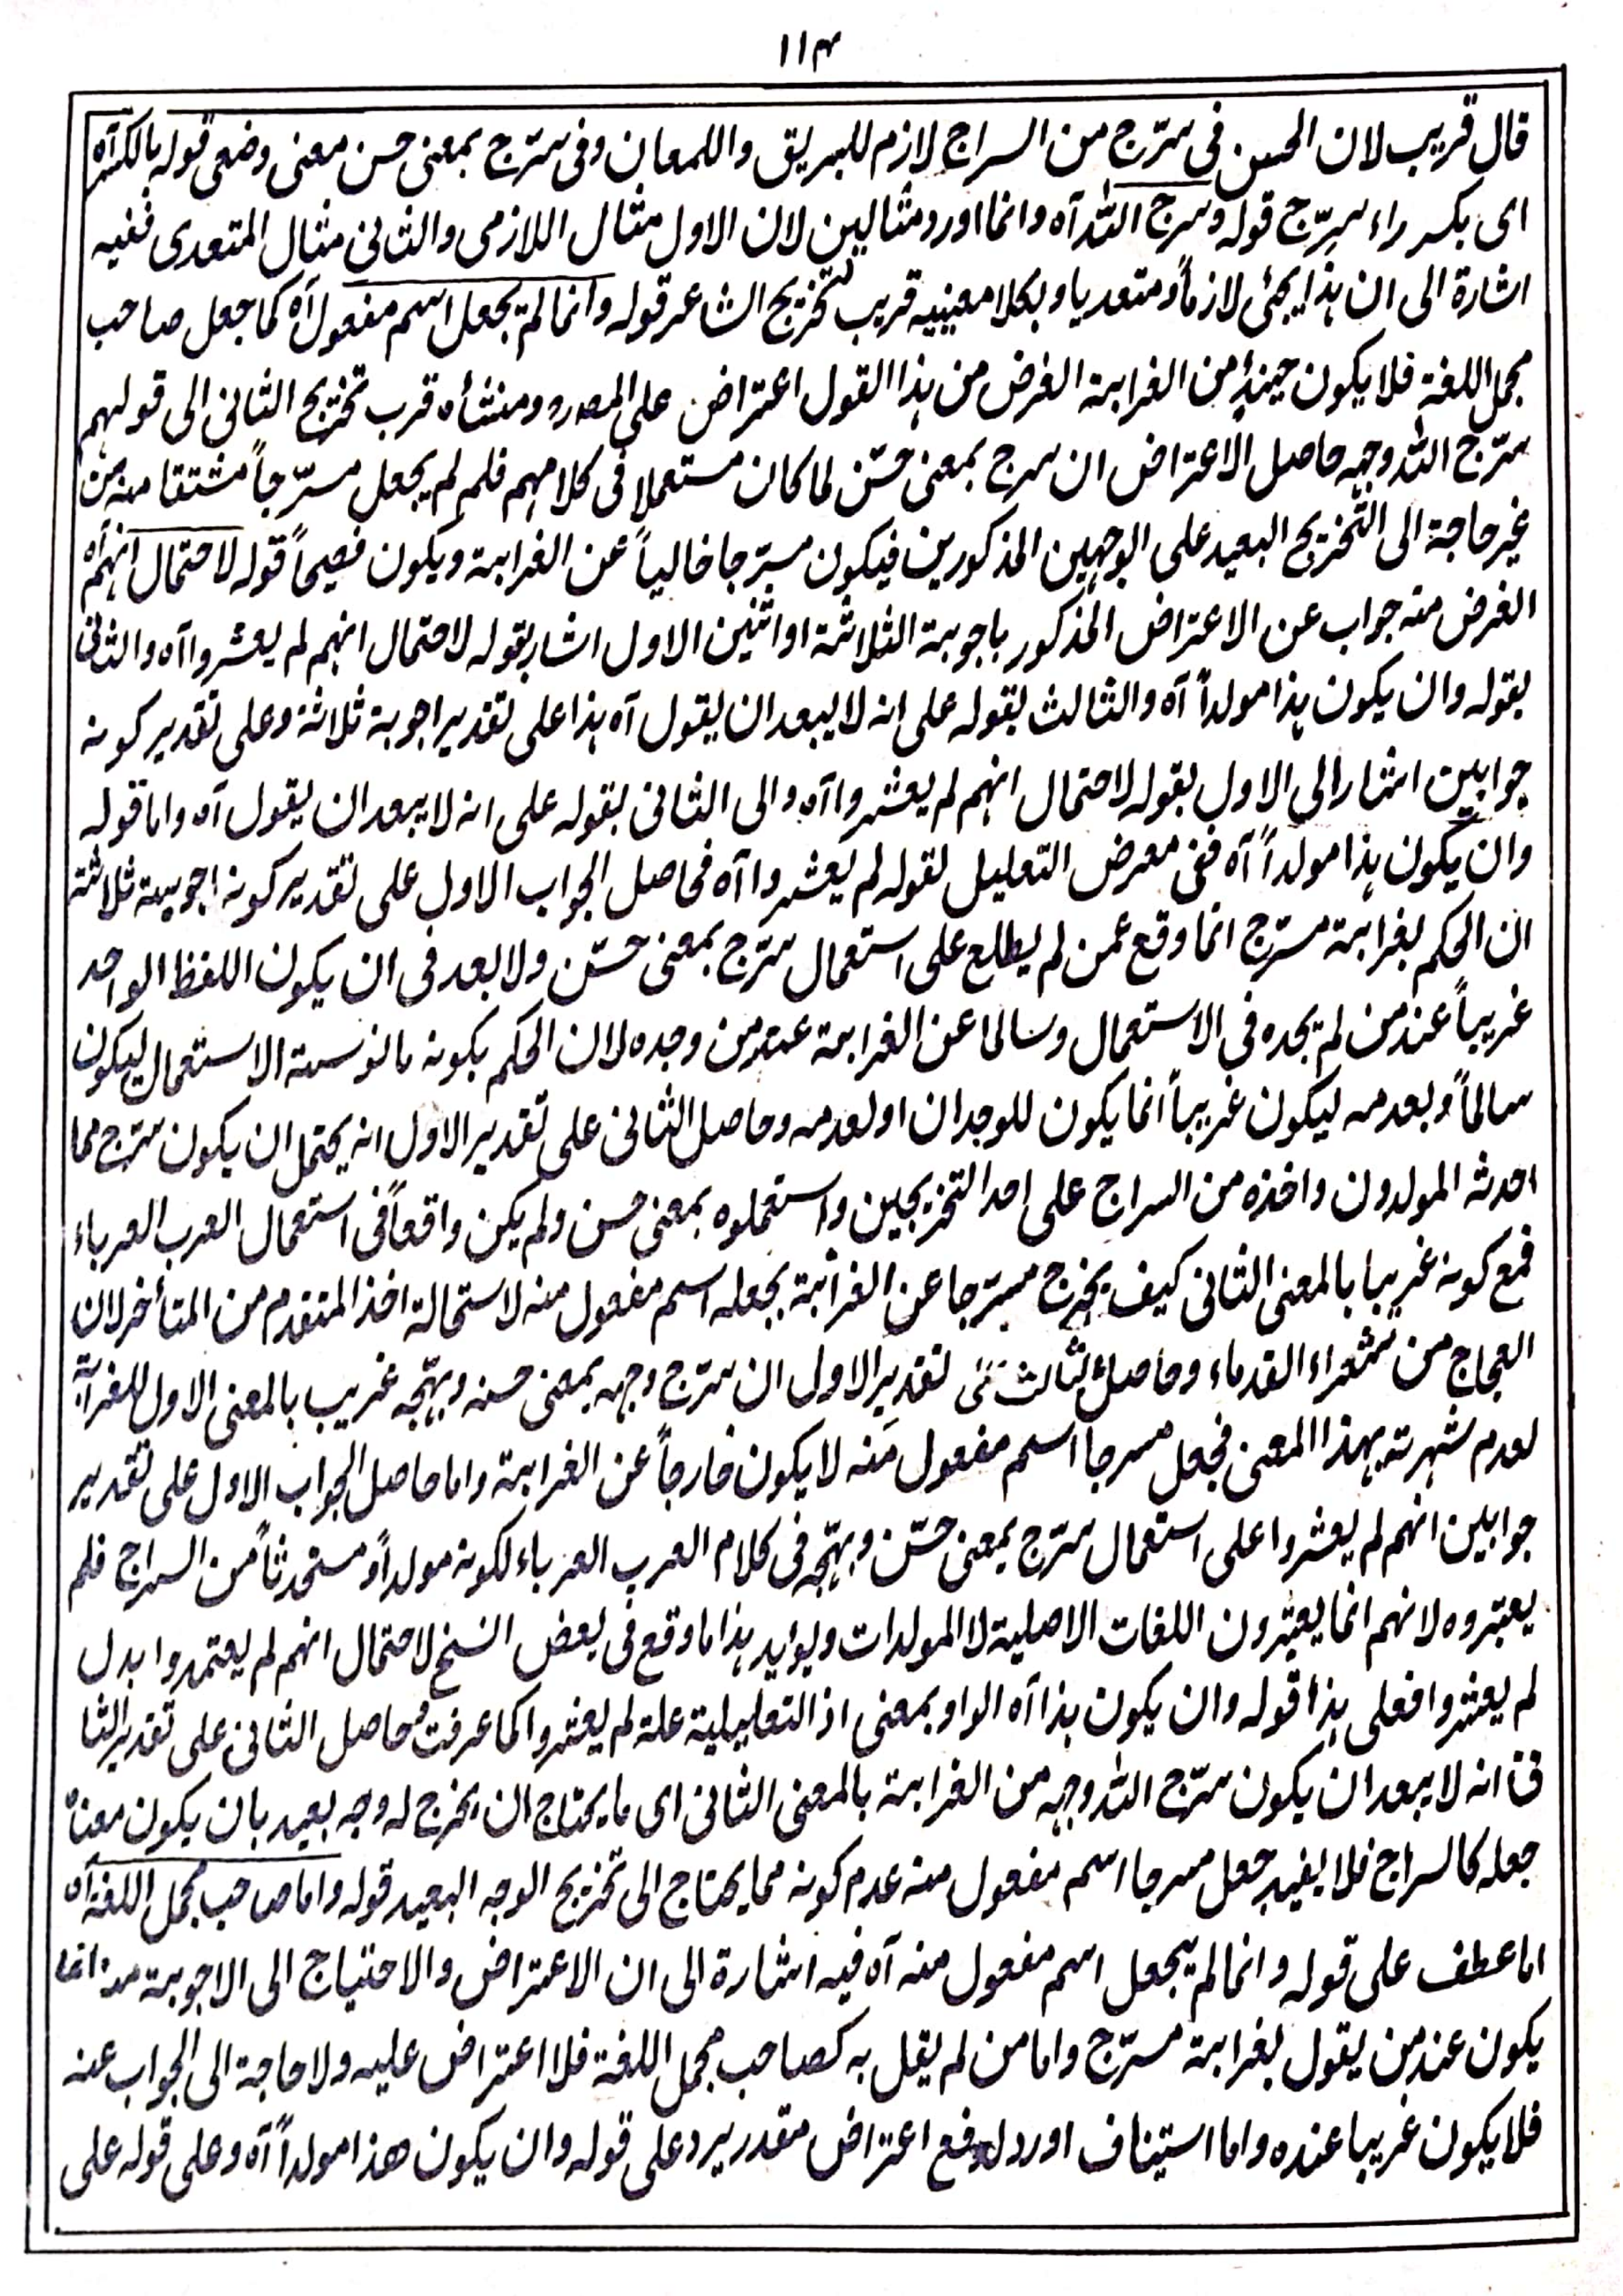 ١١٣
قال قريب لان الحسن فى سرّج من السراج لازم للبريق واللمعان وفى سرّج بمعنى حسن معنى وضعى قوله بالكسر آه
اى بكسر راء سرّج قوله وسرج الله آه وانما اورد مثالين لان الاول مثال اللازمى والثانى مثال المتعدى ففيه
اشارة الى ان هذا يجئى لازماً ومتعديا وبكلا معنييه قريب لتخريج الشاعر قوله وانما لم يجعل اسم مفعول آه كما جعل صاحب
مجمل اللغة فلا يكون حينئذٍ من الغرابة الغرض من هذا القول اعتراض على المصرو ومنشأه قرب تخريج الثانى الى قولهم
سرّج الله وجهه حاصل الاعتراض ان سرج بمعنى حسّن لما كان مستعملا فى كلامهم فلم لم يجعل مسرّجاً مشتقا منه من
غير حاجة الى التخريج البعيد على الوجهين المذكورين فيكون مسرّجا خالياً عن الغرابة ويكون فصيحاً قوله لاحتمال انهم آه
الغرض منه جواب عن الاعتراض المذكور باجوبة الثلاثة او اثنين الاول اشار بقوله لاحتمال انهم لم يعثروا آه والثانى
بقوله وان يكون هذا مولداً آه والثالث بقوله على انه لا يبعد ان يقول آه هذا على تقدير اجوبة ثلاثة وعلى تقدير كونه
جوابين اشار الى الاول بقوله لاحتمال انهم لم يعثروا آه والى الثانى بقوله على انه لا يبعد ان يقول آه واما قوله
وان يكون هذا مولداً آه ففى معرض التعليل لقوله لم يعثروا آه فحاصل الجواب الاول على تقدير كونه اجوبة ثلاثة
ان الحكم بغرابة مسرّج انما وقع عمن لم يطلع على استعمال سرّج بمعنى حسّن ولا بعد فى ان يكون اللفظ الواحد
غريباً عند من لم يجده فى الاستعمال وسالما عن الغرابة عند من وجده لان الحكم بكونه مانوسة الاستعمال ليكون
سالماً وبعدمه ليكون غريباً انما يكون للوجدان او لعدمه وحاصل الثانى على تقدير الاول انه يحتمل ان يكون سرّج مما
احدثه المولدون واخذه من السراج على احد التخريجين واستعملوه بمعنى حسن ولم يكن واقعاً فى استعمال العرب العرباء
فمع كونه غريبا بالمعنى الثانى كيف يخرج مسرّجا عن الغرابة بجعله اسم مفعول منه لاستحالة اخذ المتقدم من المتأخر لان
العجاج من شعراء القدماء وحاصل الثالث على تقدير الاول ان سرّج وجهه بمعنى حسنه وبهّجه غريب بالمعنى الاول للغرابة
لعدم شهرته بهذا المعنى فجعل مسرجا اسم مفعول منه لا يكون خارجاً عن الغرابة واما حاصل الجواب الاول على تقدير
جوابين انهم لم يعثروا على استعمال سرّج بمعنى حسّن وبهّجه فى كلام العرب العرباء لكونه مولداً ومستحدثاً من السراج فلم
يعتبروه لانهم انما يعتبرون اللغات الاصلية لا المولدات ويوايد هذا ما وقع فى بعض النسخ لاحتمال انهم لم يعتمدوا بدل
لم يعثروا فعلى هذا قوله وان يكون هذا آه الواو بمعنى اذ التعليلية علة لم يعثروا كما عرفت وحاصل الثانى على تقدير الثا
نى انه لا يبعد ان يكون سرّج الله وجهه من الغرابة بالمعنى الثانى اى ما يحتاج ان يخرج له وجه بعيد بان يكون معناه
جعله كالسراج فلا يفيد جعل مسرجا اسم مفعول منه عدم كونه مما يحتاج الى تخريج الوجه البعيد قوله واما صاحب مجمل اللغة آه
اما عطف على قوله وانما لم يجعل اسم مفعول منه آه فيه اشارة الى ان الاعتراض والاحتياج الى الاجوبة انما
يكون عند من يقول بغرابة مسرّج واما من لم يقل به كصاحب مجمل اللغة فلا اعتراض عليه ولا حاجة الى الجواب عنه
فلا يكون غريبا عنده واما استيناف اورد لدفع اعتراض مقدر يرد على قوله وان يكون هذا مولداً آه وعلى قوله على